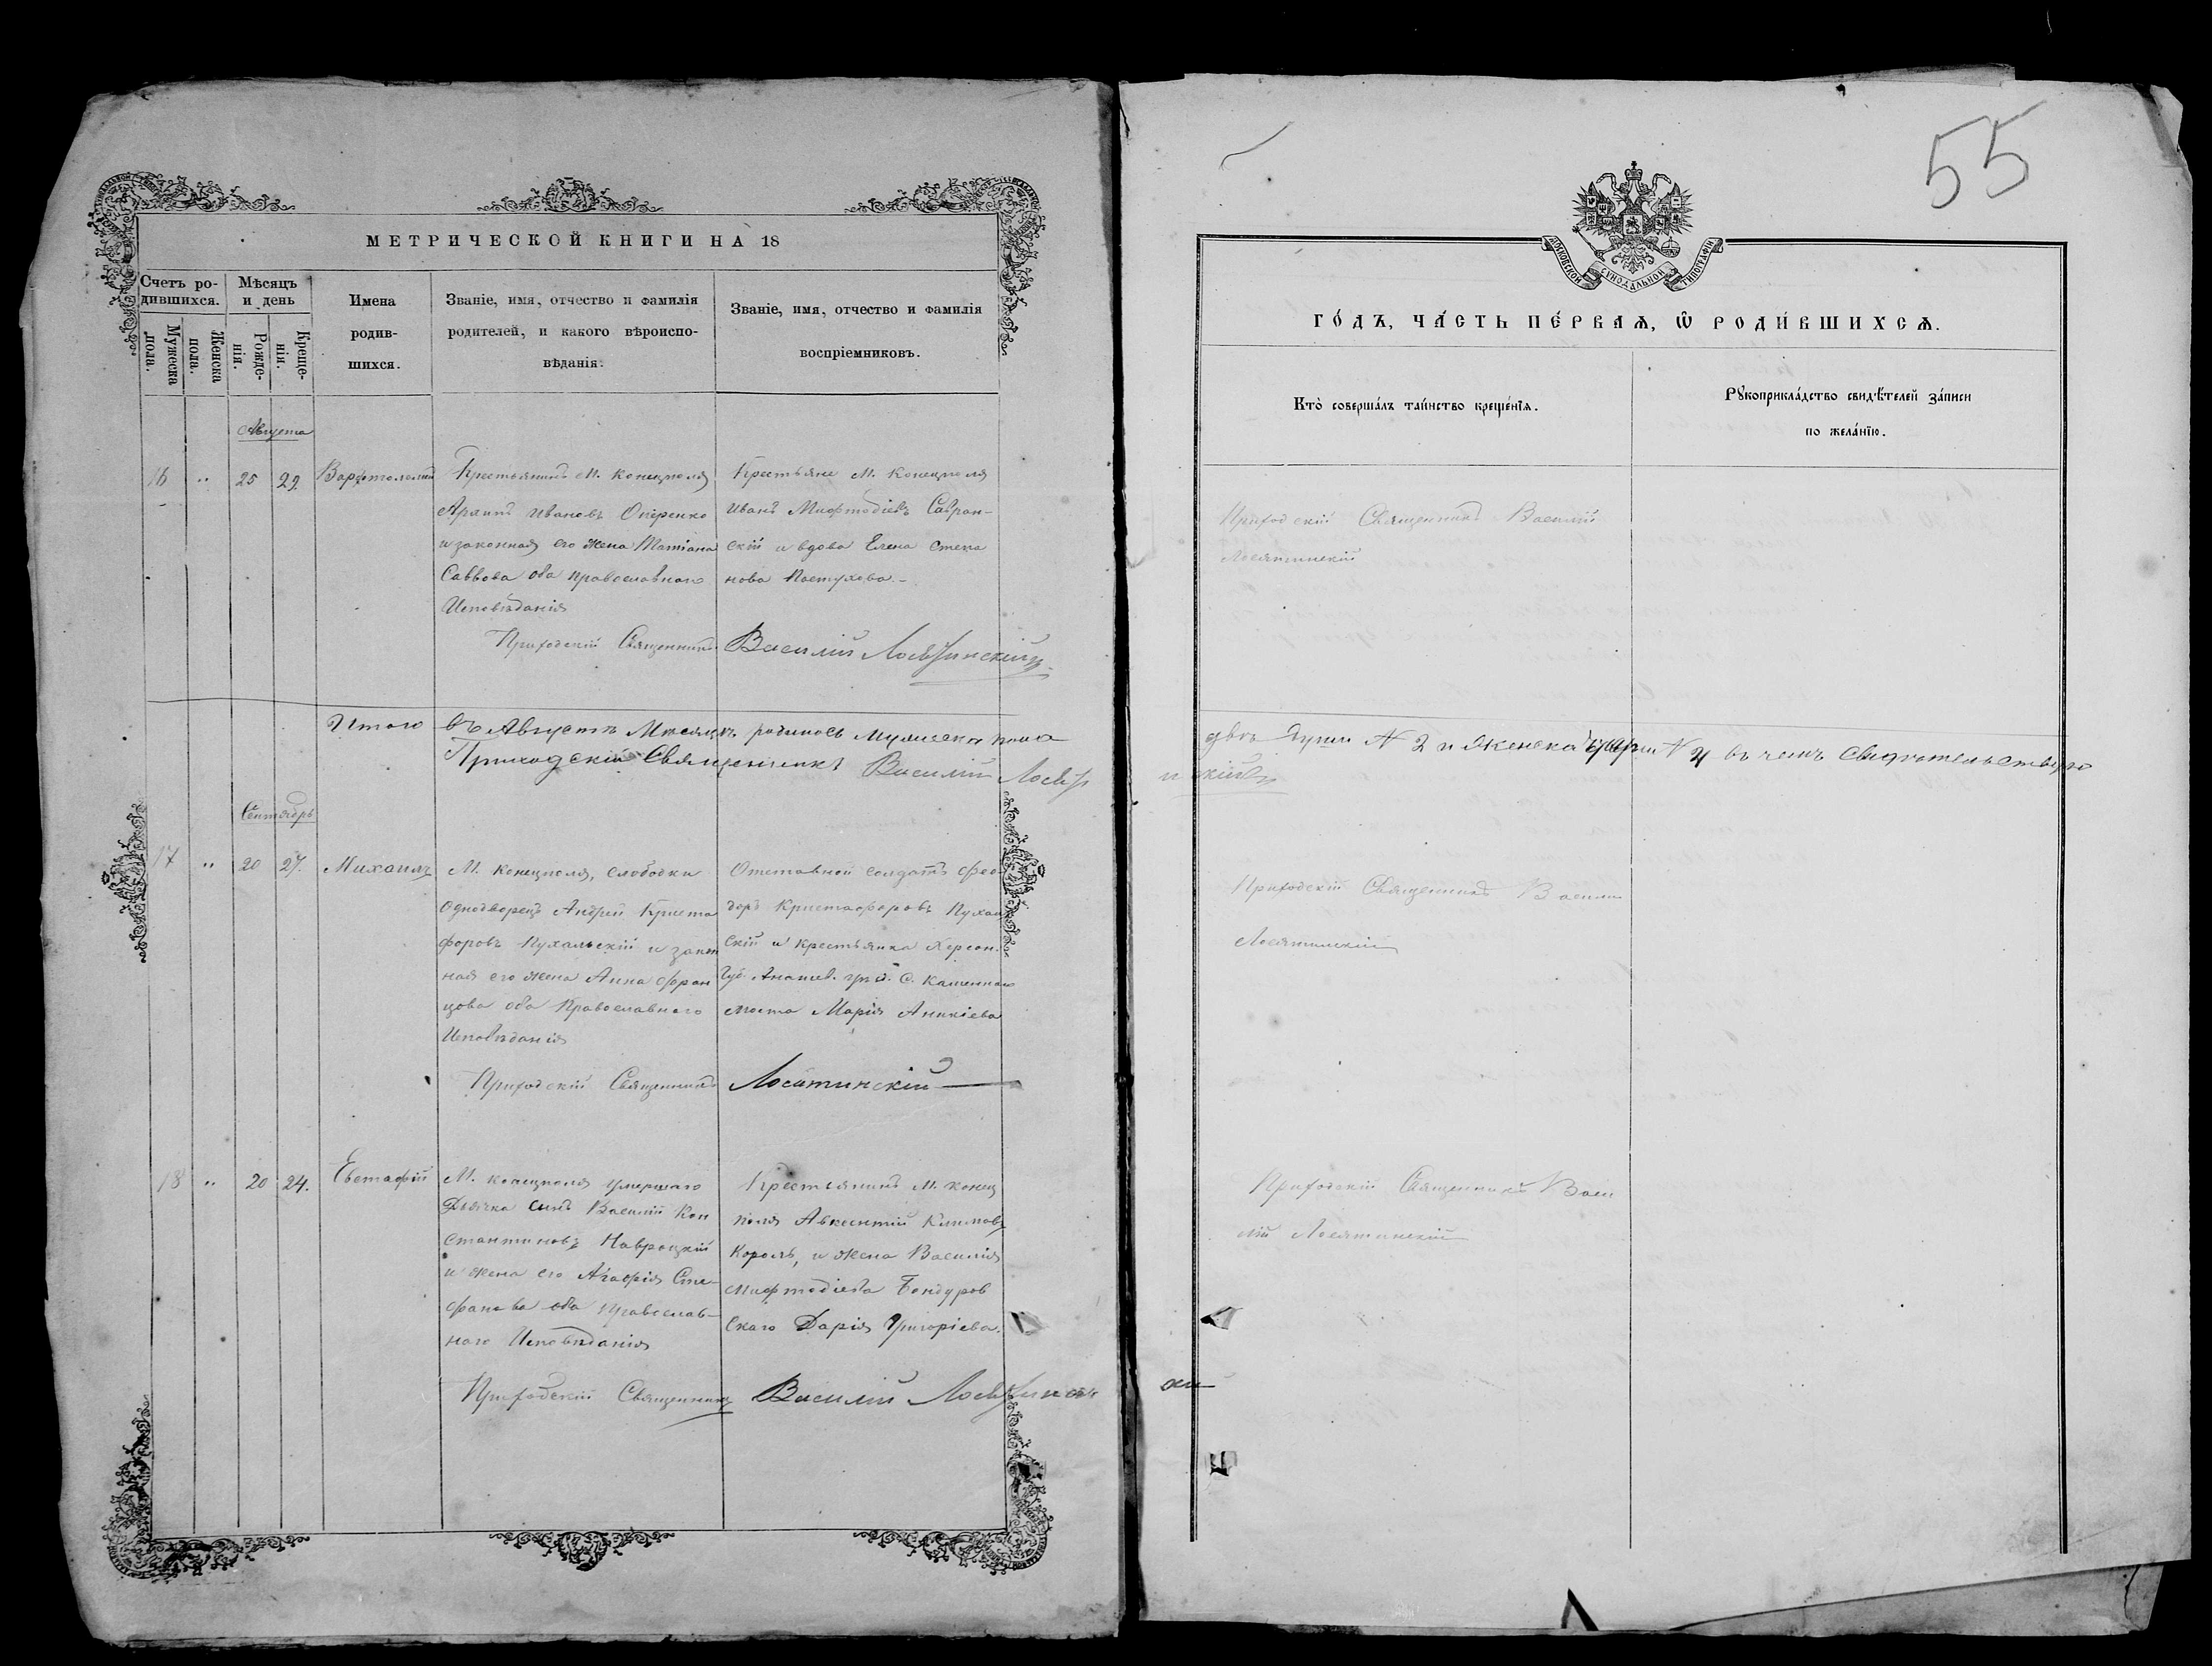 55
МЕТРИЧЕСКОЙ КНИГИ НА 18
Счетъ ро-
дившихся.
Мужеска
пола.
Женска
пола.
Мѣсяцъ
и день
Рожде-
нія.
Креще-
нія.
Имена
родив-
шихся.
Званіе, имя, отчество и фамилія
родителей, и какого вѣроиспо-
вѣданія.
Званіе, имя, отчество и фамилія
воспріемниковъ.
Августа
16 " 25 29. Варфоломей
Крестьянинъ М. Конецполя
Архипъ Ивановъ
и законная его жена Татіана
Саввова оба православнаго
Исповѣданія
Крестьяне М. Конецполя
Иванъ Мифтодіевъ Савран-
скій и вдова Елена Степа
нова Пастухова.-
Приходскій Священникъ Василій Лосятинскій
Итого въ Августѣ Мѣсяцѣ родилось Мужеска пола
Приходскій Священникъ Василій Лосят
Сентябрь
17 " 20 27. Михаилъ
М. Конецполя, слободки
Однодворецъ Андрей Криста
форовъ Пухальскій и закон
ная его жена Анна Фран
цова оба Православнаго
Исповѣданія
Отставной солдатъ Фео
доръ Кристафоровъ Пухал
скій и крестьянка Херсон.
Губ. Ананьев. С. Каменнаго
моста Марія Аникіева
Приходскій Священникъ Лосятинскій
18 " 20 24. Евстафій
М. Конецполя умершаго
Дьячка сынъ Василій Кон
стантиновъ Навроцкій
и жена его Агафія Сте-
фанова оба православ-
наго Исповѣданія
Крестьянинъ М. Конец
поля Авксентій Климовъ
Король, и жена Василія
Мифтодіева Бондуров
скаго Дарія Григоріева.
Приходскій Священникъ Василій Лосятинск
МОСКОВСКОЙ СѴНОДАЛЬНОЙ ТИПОГРАФІИ
ГО́ДЪ, ЧА́СТЬ ПЕ́РВАѦ, Ѿ РОДИ́ВШИХСѦ.
Кто̀ соверша́лъ та́инство креще́нїѧ.
Рꙋкоприкла́дство свидѣ́телей за́писи
по жела́нїю.
Приходскій Священникъ Василій
Лосятинскій
двѣ души N 2 и Женска N 4 въ чемъ свидѣтельствую
инскій
Приходскій Священникъ Василій
Лосятинскій
Приходскій Священникъ Васи
лій Лосятинскій